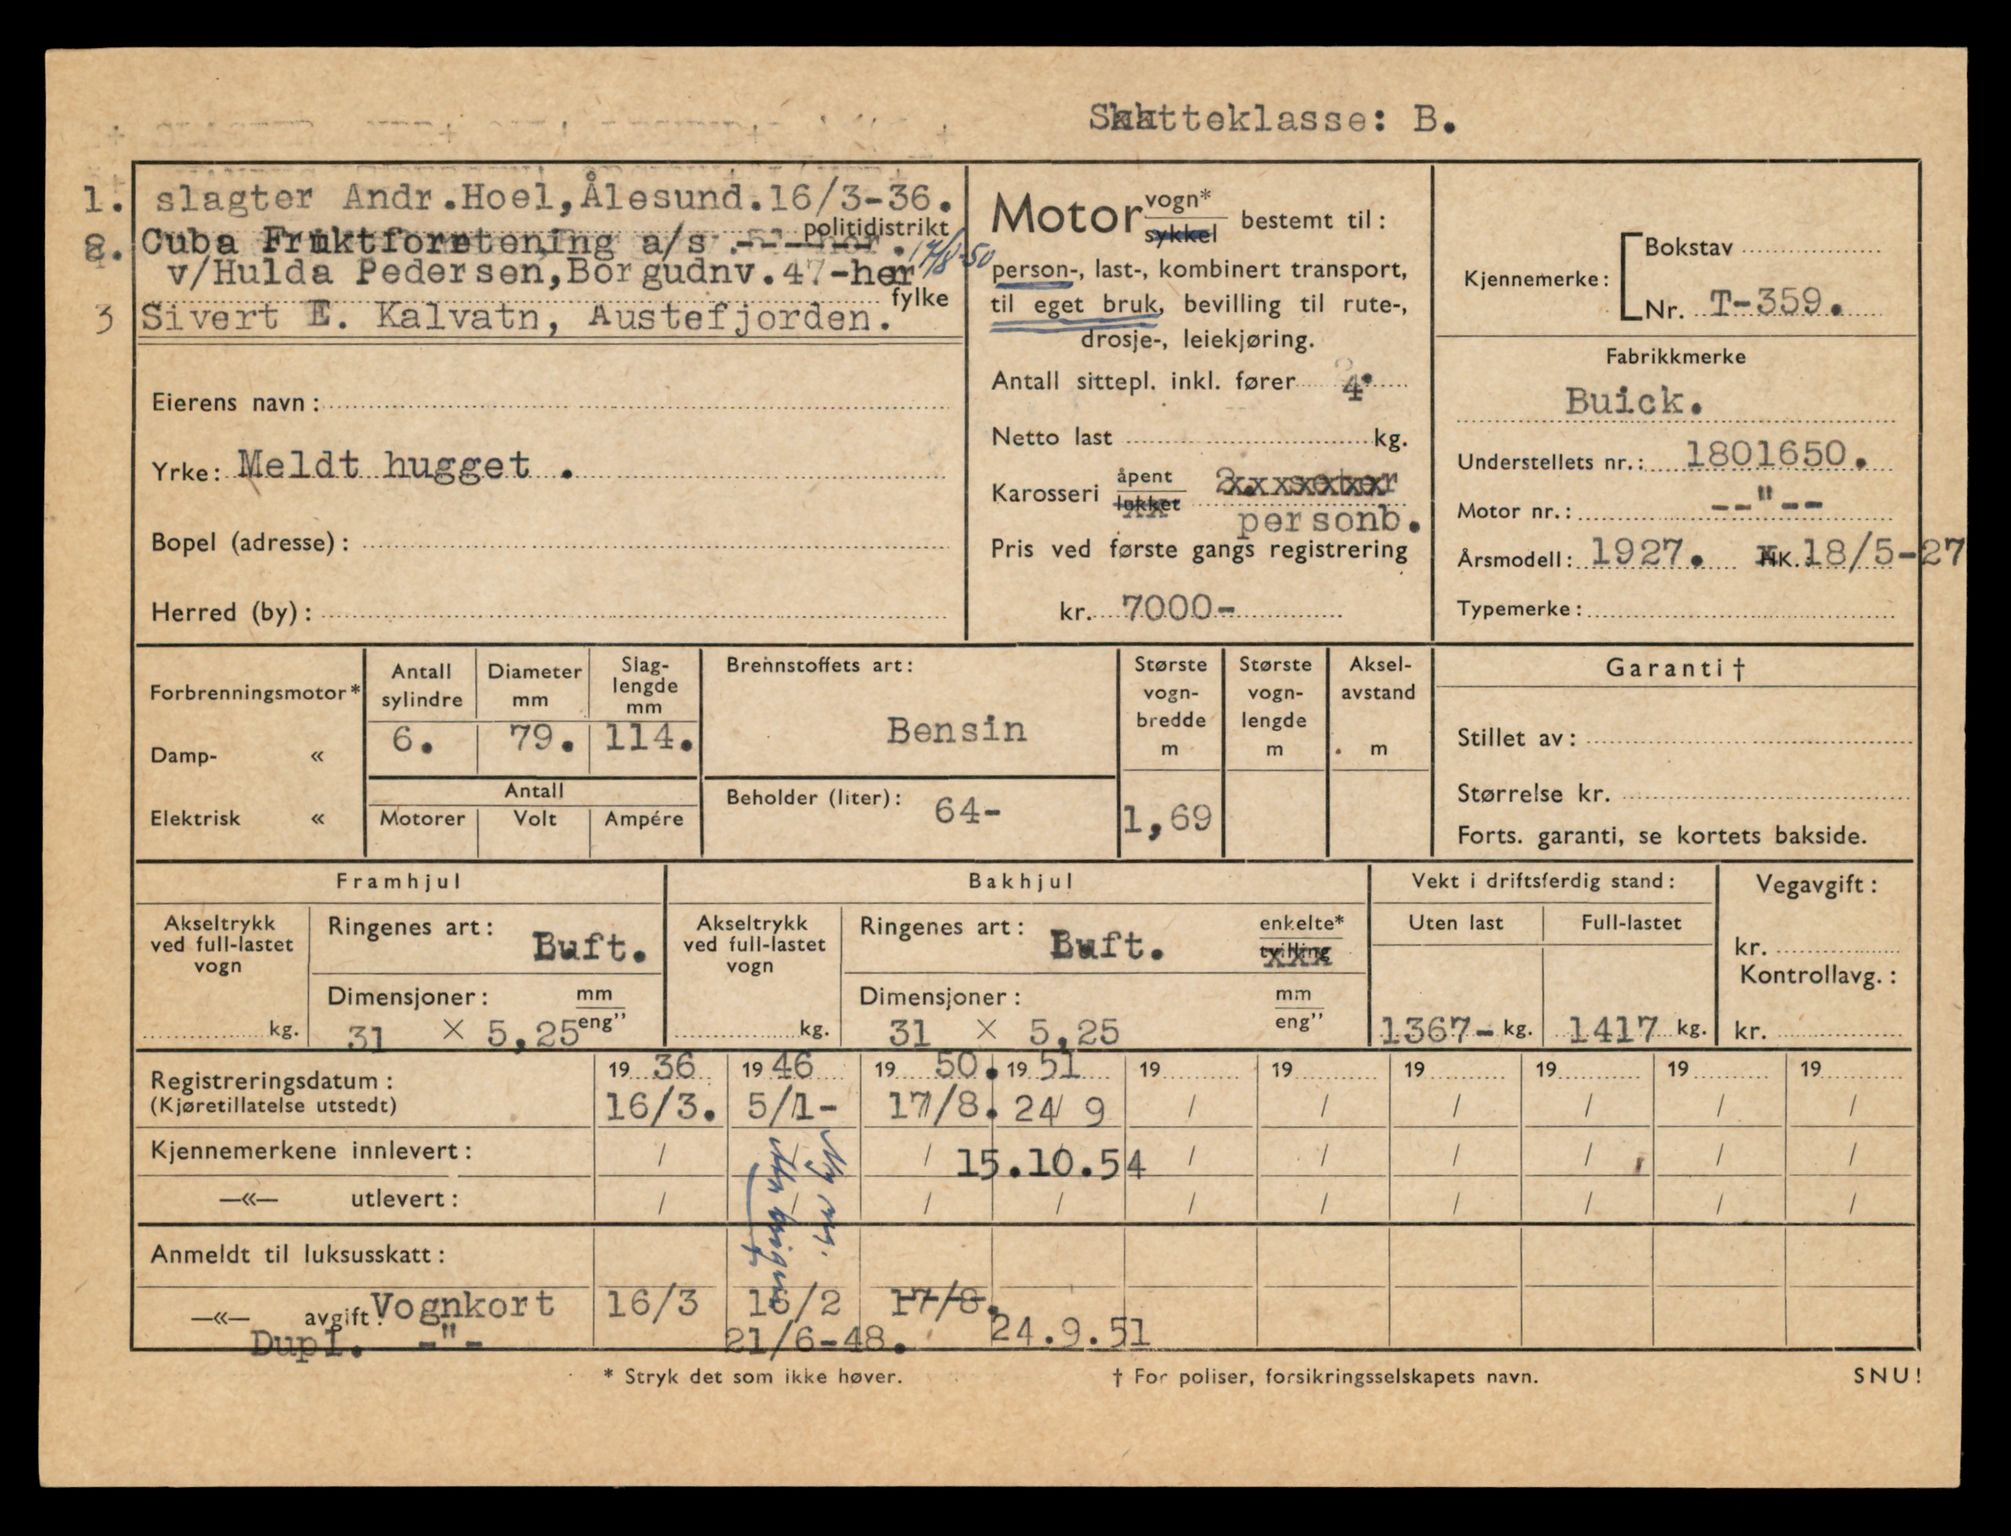 Skatteklasse: B.
1. slagter Andr.Hoel,Ålesund.16/3-36.
politidistrikt
2. Cuba Fruktforretening a/s
17/8-50
v/Hulda Pedersen,Borgudnv.47-her
fylke
3 Sivert E. Kalvatn, Austefjorden.
Eierens navn:
Yrke: Meldt hugget .
Bopel (adresse):
Herred (by):
Motor vogn* sykkel bestemt til:
person-, last-, kombinert transport,
til eget bruk, bevilling til rute-,
drosje-, leiekjøring.
Antall sittepl. inkl. fører 4.
Netto last kg.
Karosseri åpent lukket
personb.
Pris ved første gangs registrering
kr. 7000-
Kjennemerke: Bokstav
Nr. T-359.
Fabrikkmerke
Buick.
Understellets nr.: 1801650.
Motor nr.: --"--
Årsmodell: 1927. HK. 18/5-27
Typemerke:
Forbrenningsmotor*
Damp- «
Elektrisk «
Antall sylindre
Diameter mm
Slag-lengde mm
6. 79. 114.
Antall
Motorer Volt Ampére
Brennstoffets art:
Bensin
Beholder (liter): 64-
Største vogn-bredde m
1,69
Største vogn-lengde m
Aksel-avstand m
Garanti †
Stillet av:
Størrelse kr.
Forts. garanti, se kortets bakside.
Framhjul
Akseltrykk ved full-lastet vogn
kg.
Ringenes art: Luft.
Dimensjoner: mm eng"
31 × 5,25
Bakhjul
Akseltrykk ved full-lastet vogn
kg.
Ringenes art: Luft. enkelte* tvilling
Dimensjoner: mm eng"
31 × 5,25
Vekt i driftsferdig stand:
Uten last Full-lastet
1367- kg. 1417 kg.
Vegavgift:
kr.
Kontrollavg.:
kr.
Registreringsdatum: 19 36 19 46 19 50. 19 51 19 19 19 19 19 19
(Kjøretillatelse utstedt) 16/3. 5/1- 17/8. 24/9 / / / / / /
Kjennemerkene innlevert: / / / 15.10.54 / / / / / /
—«— utlevert: / / / / / / / / / /
Anmeldt til luksusskatt:
—«— avgift: Vognkort 16/3 16/2 17/8.
Dupl. -"- 21/6-48. 24.9.51
* Stryk det som ikke høver.
† For poliser, forsikringsselskapets navn.
SNU!